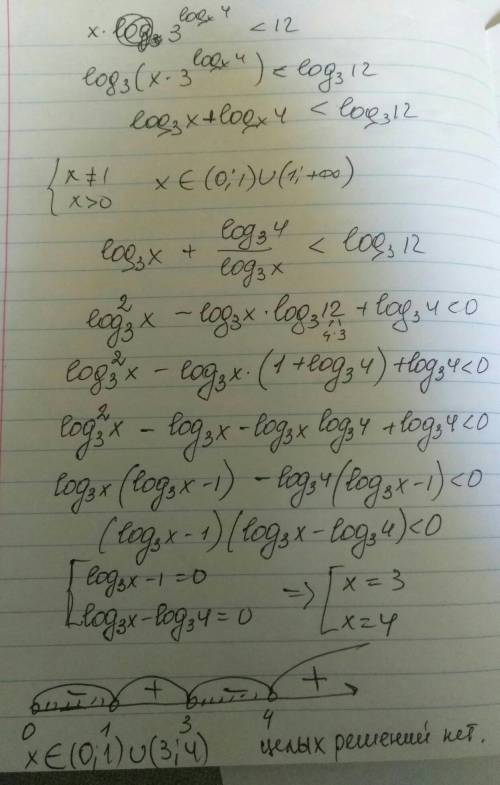 x · log₃ 3^(logₓ4) < 12
log₃(x · 3^(logₓ4)) < log₃12
log₃x + logₓ4 < log₃12
{ x ≠ 1    x ∈ (0; 1) ∪ (1; +∞)
x > 0
log₃x + log₃4 / log₃x < log₃12
log₃²x − log₃x · log₃12 + log₃4 < 0
4·3
log₃²x − log₃x · (1 + log₃4) + log₃4 < 0
log₃²x − log₃x − log₃x log₃4 + log₃4 < 0
log₃x (log₃x − 1) − log₃4 (log₃x − 1) < 0
(log₃x − 1)(log₃x − log₃4) < 0
[ log₃x − 1 = 0    => [ x = 3
log₃x − log₃4 = 0    x = 4
− + − +
0 1 3 4
x ∈ (0; 1) ∪ (3; 4)    целых решений нет.